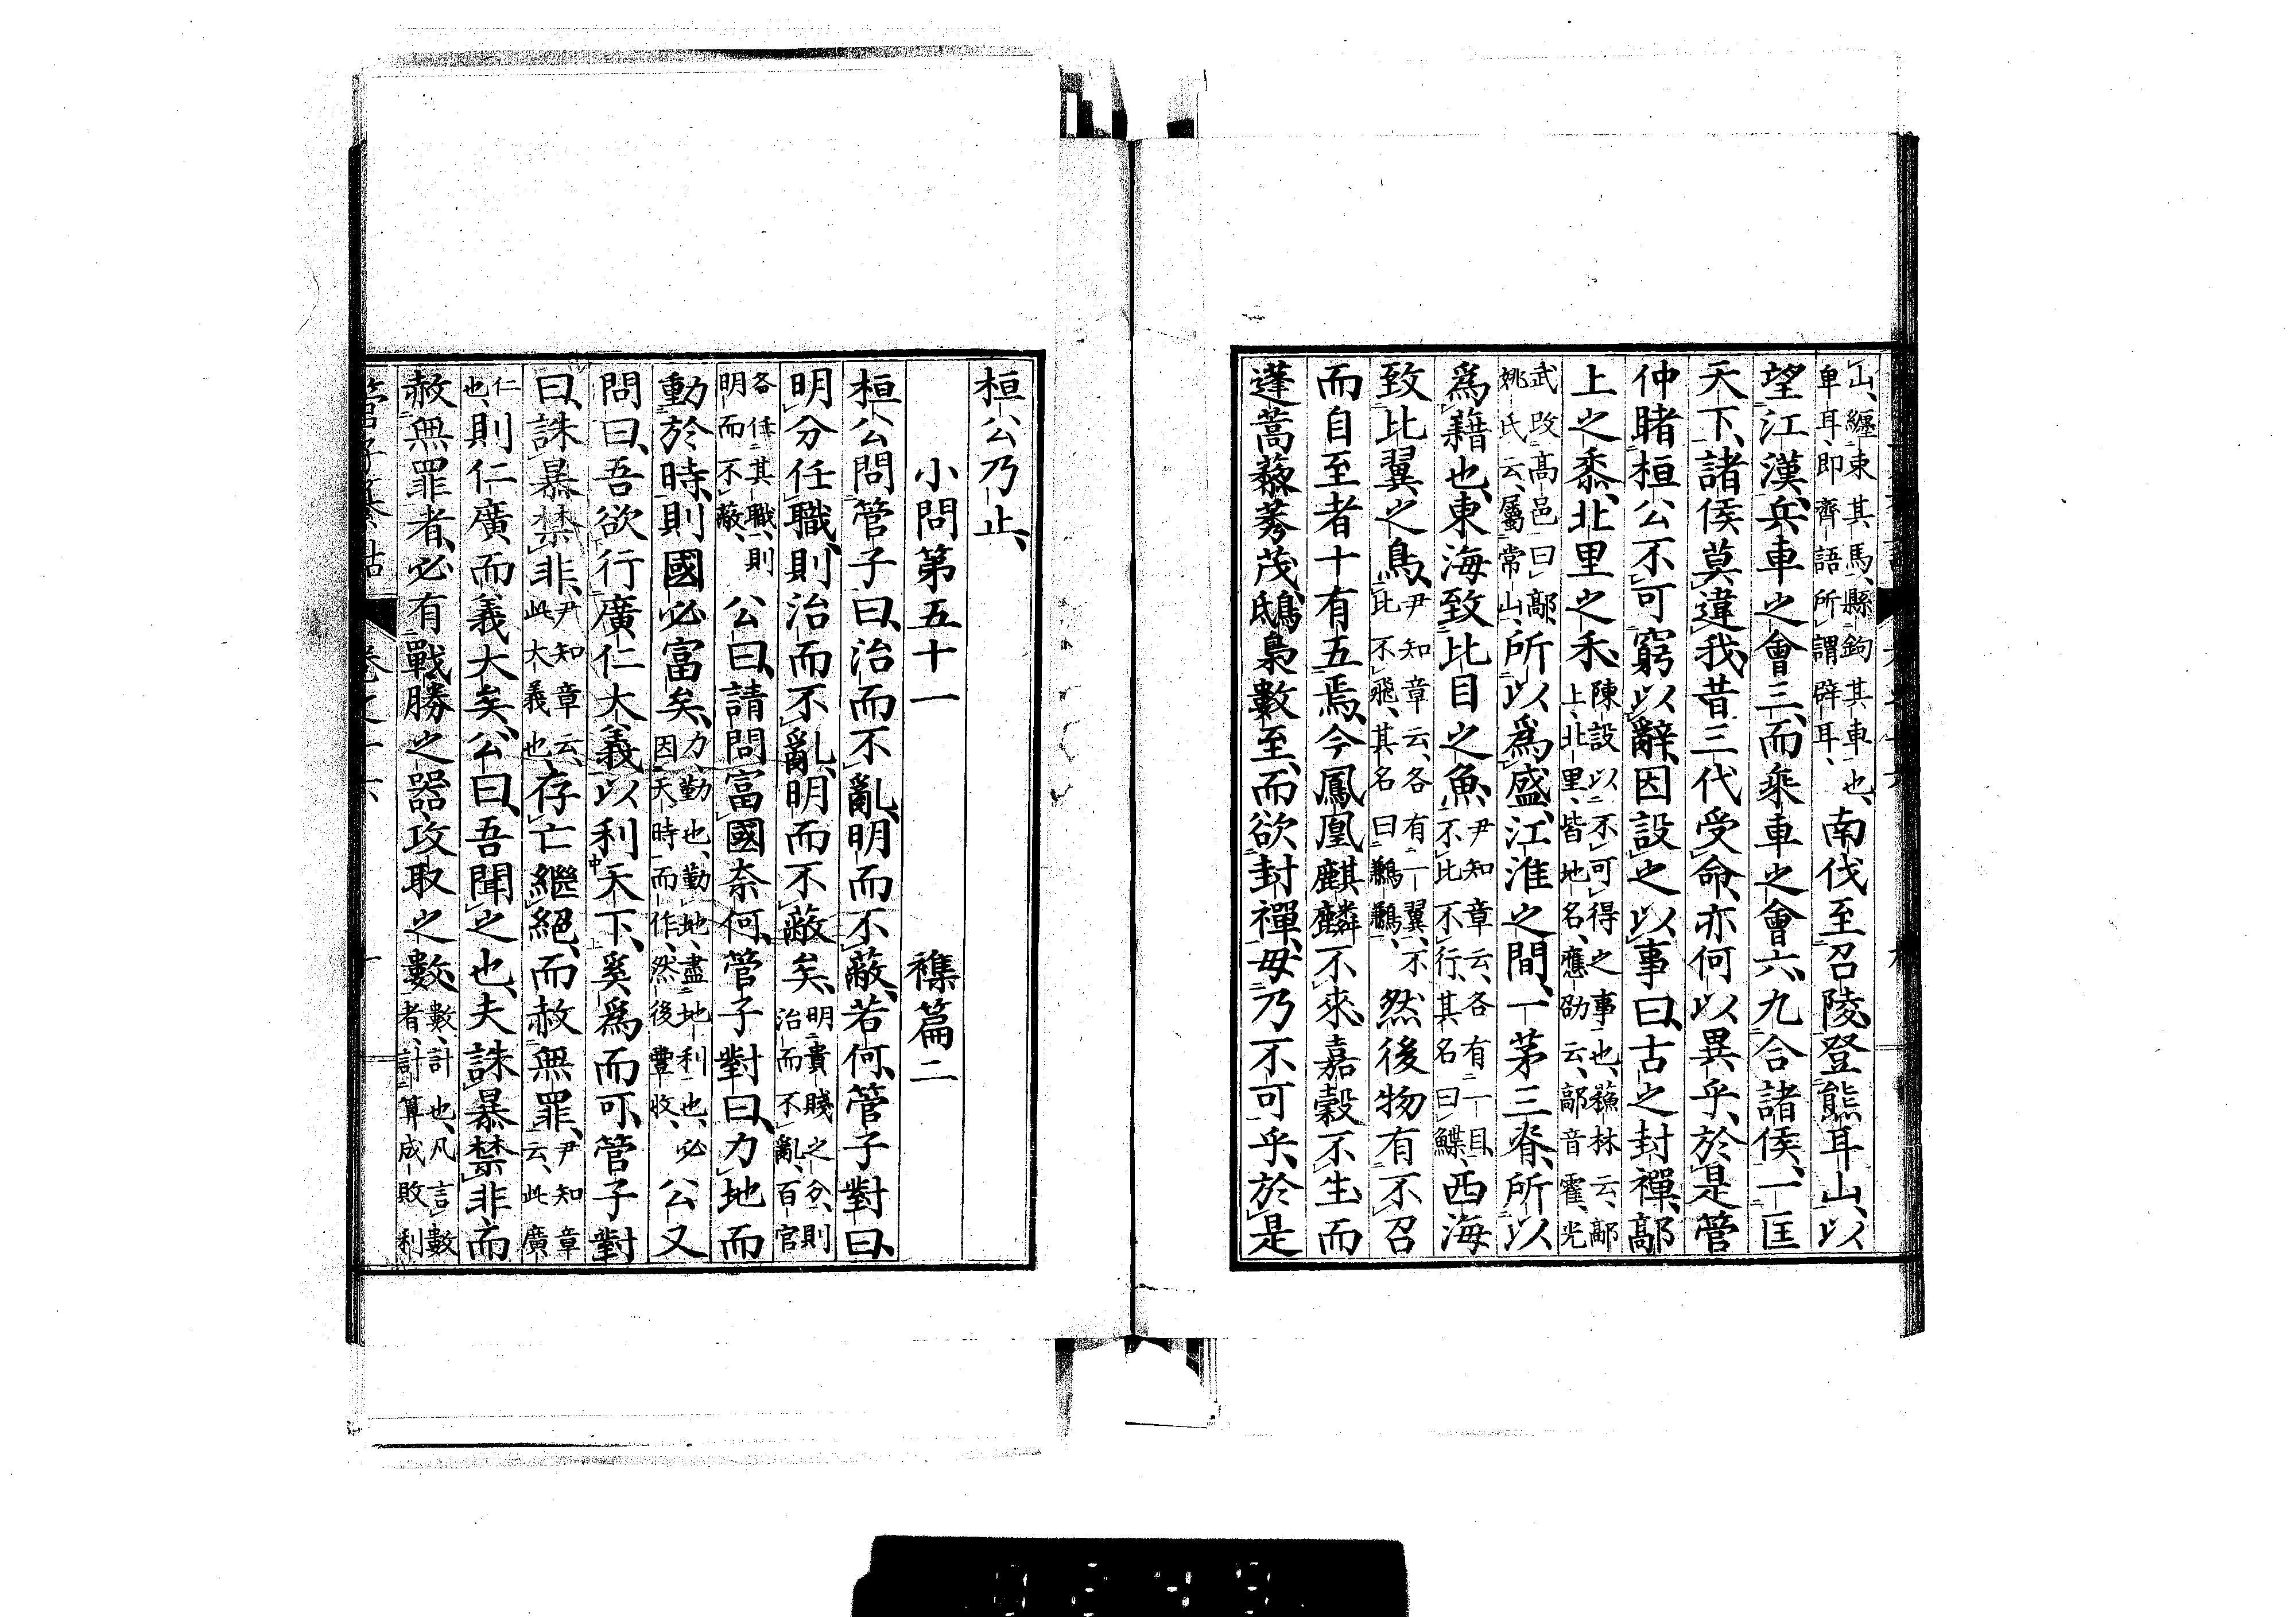 山、纏束其馬、縣鉤其車也、卑耳、即齊語所謂辟耳、南伐至召陵、登熊耳山、以
望江漢、兵車之會三、而乘車之會六、九合諸侯、一匡
天下、諸侯莫違我、昔三代受命、亦何以異乎、於是管
仲睹桓公不可窮以辭、因設之以事曰、古之封禪、鄗
上之黍、北里之禾、陳設以不可得之事也、蘇林云、鄗上、北里、皆地名、應劭云、鄗音霍、光
武改高邑曰鄗、姚氏云、屬常山、所以爲盛、江淮之間、一茅三脊、所以
爲藉也、東海致比目之魚、尹知章云、各有一目、不比不行、其名曰鰈、西海
致比翼之鳥、尹知章云、各有一翼、不比不飛、其名曰鶼鶼、然後物有不召
而自至者十有五焉、今鳳凰麒麟不來、嘉穀不生、而
蓬蒿藜莠茂、鴟梟數至、而欲封禪、毋乃不可乎、於是
桓公乃止、
小問第五十一　襍篇二
桓公問管子曰、治而不亂、明而不蔽、若何、管子對曰、
明分任職、則治而不亂、明而不蔽矣、明貴賤之分、則治而不亂、百官
各任其職、則明而不蔽、公曰、請問富國奈何、管子對曰、力地而
動於時、則國必富矣、力、勤也、勤地、盡地利也、必因天時而作、然後豐收、公又
問曰、吾欲行廣仁大義、以利天下、奚爲而可、管子對
曰、誅暴禁非、尹知章云、此大義也、存亡繼絕、而赦無罪、尹知章云、此廣
仁也、則仁廣而義大矣、公曰、吾聞之也、夫誅暴禁非、而
赦無罪者、必有戰勝之器、攻取之數、數、計也、凡言數者、計算成敗利
管子纂詁　卷之十六、　十